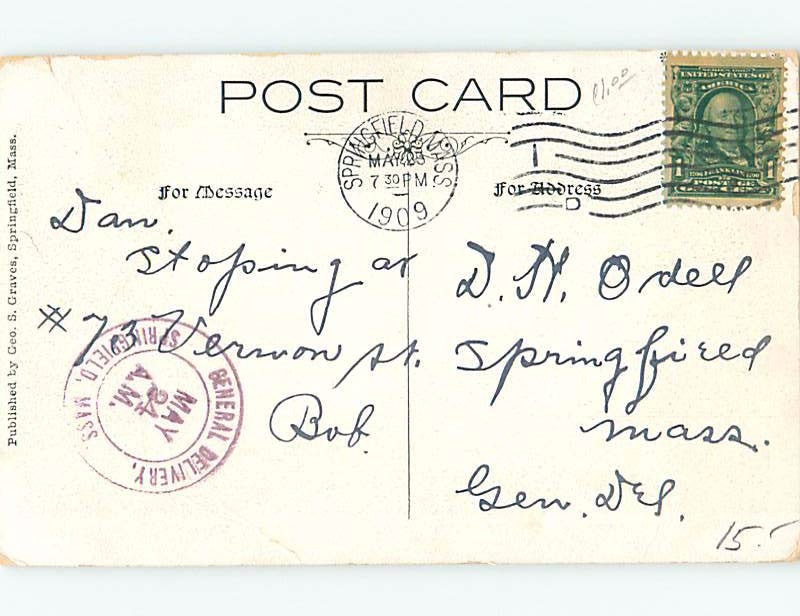 POST CARD
£1.00
SPRINGFIELD, MASS.
MAY 23
7 30 PM
1909
1
D
SERIES 1902
UNITED STATES OF
AMERICA
1
1
FRANKLIN
POSTAGE
For Message
For Address
Dan.
Stoping at
# 73 Vernon st.
Bob.
D. H. Odell
Springfield
Mass.
Gen. Del.
GENERAL DELIVERY,
SPRINGFIELD, MASS.
MAY
24
A.M.
Published by Geo. S. Graves, Springfield, Mass.
15.-